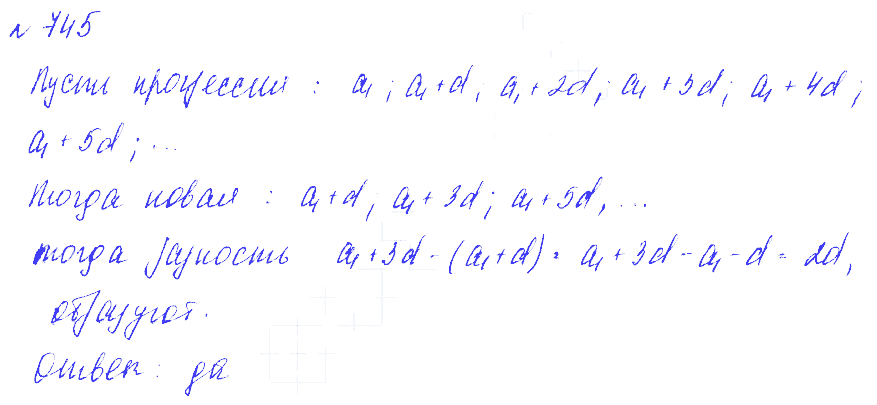 № 745
Пусть прогрессия : a₁ ; a₁ + d ; a₁ + 2d ; a₁ + 3d ; a₁ + 4d ;
a₁ + 5d ; ...
Тогда новая : a₁ + d ; a₁ + 3d ; a₁ + 5d, ...
тогда разность a₁ + 3d - (a₁ + d) = a₁ + 3d - a₁ - d = 2d,
образуют.
Ответ : да